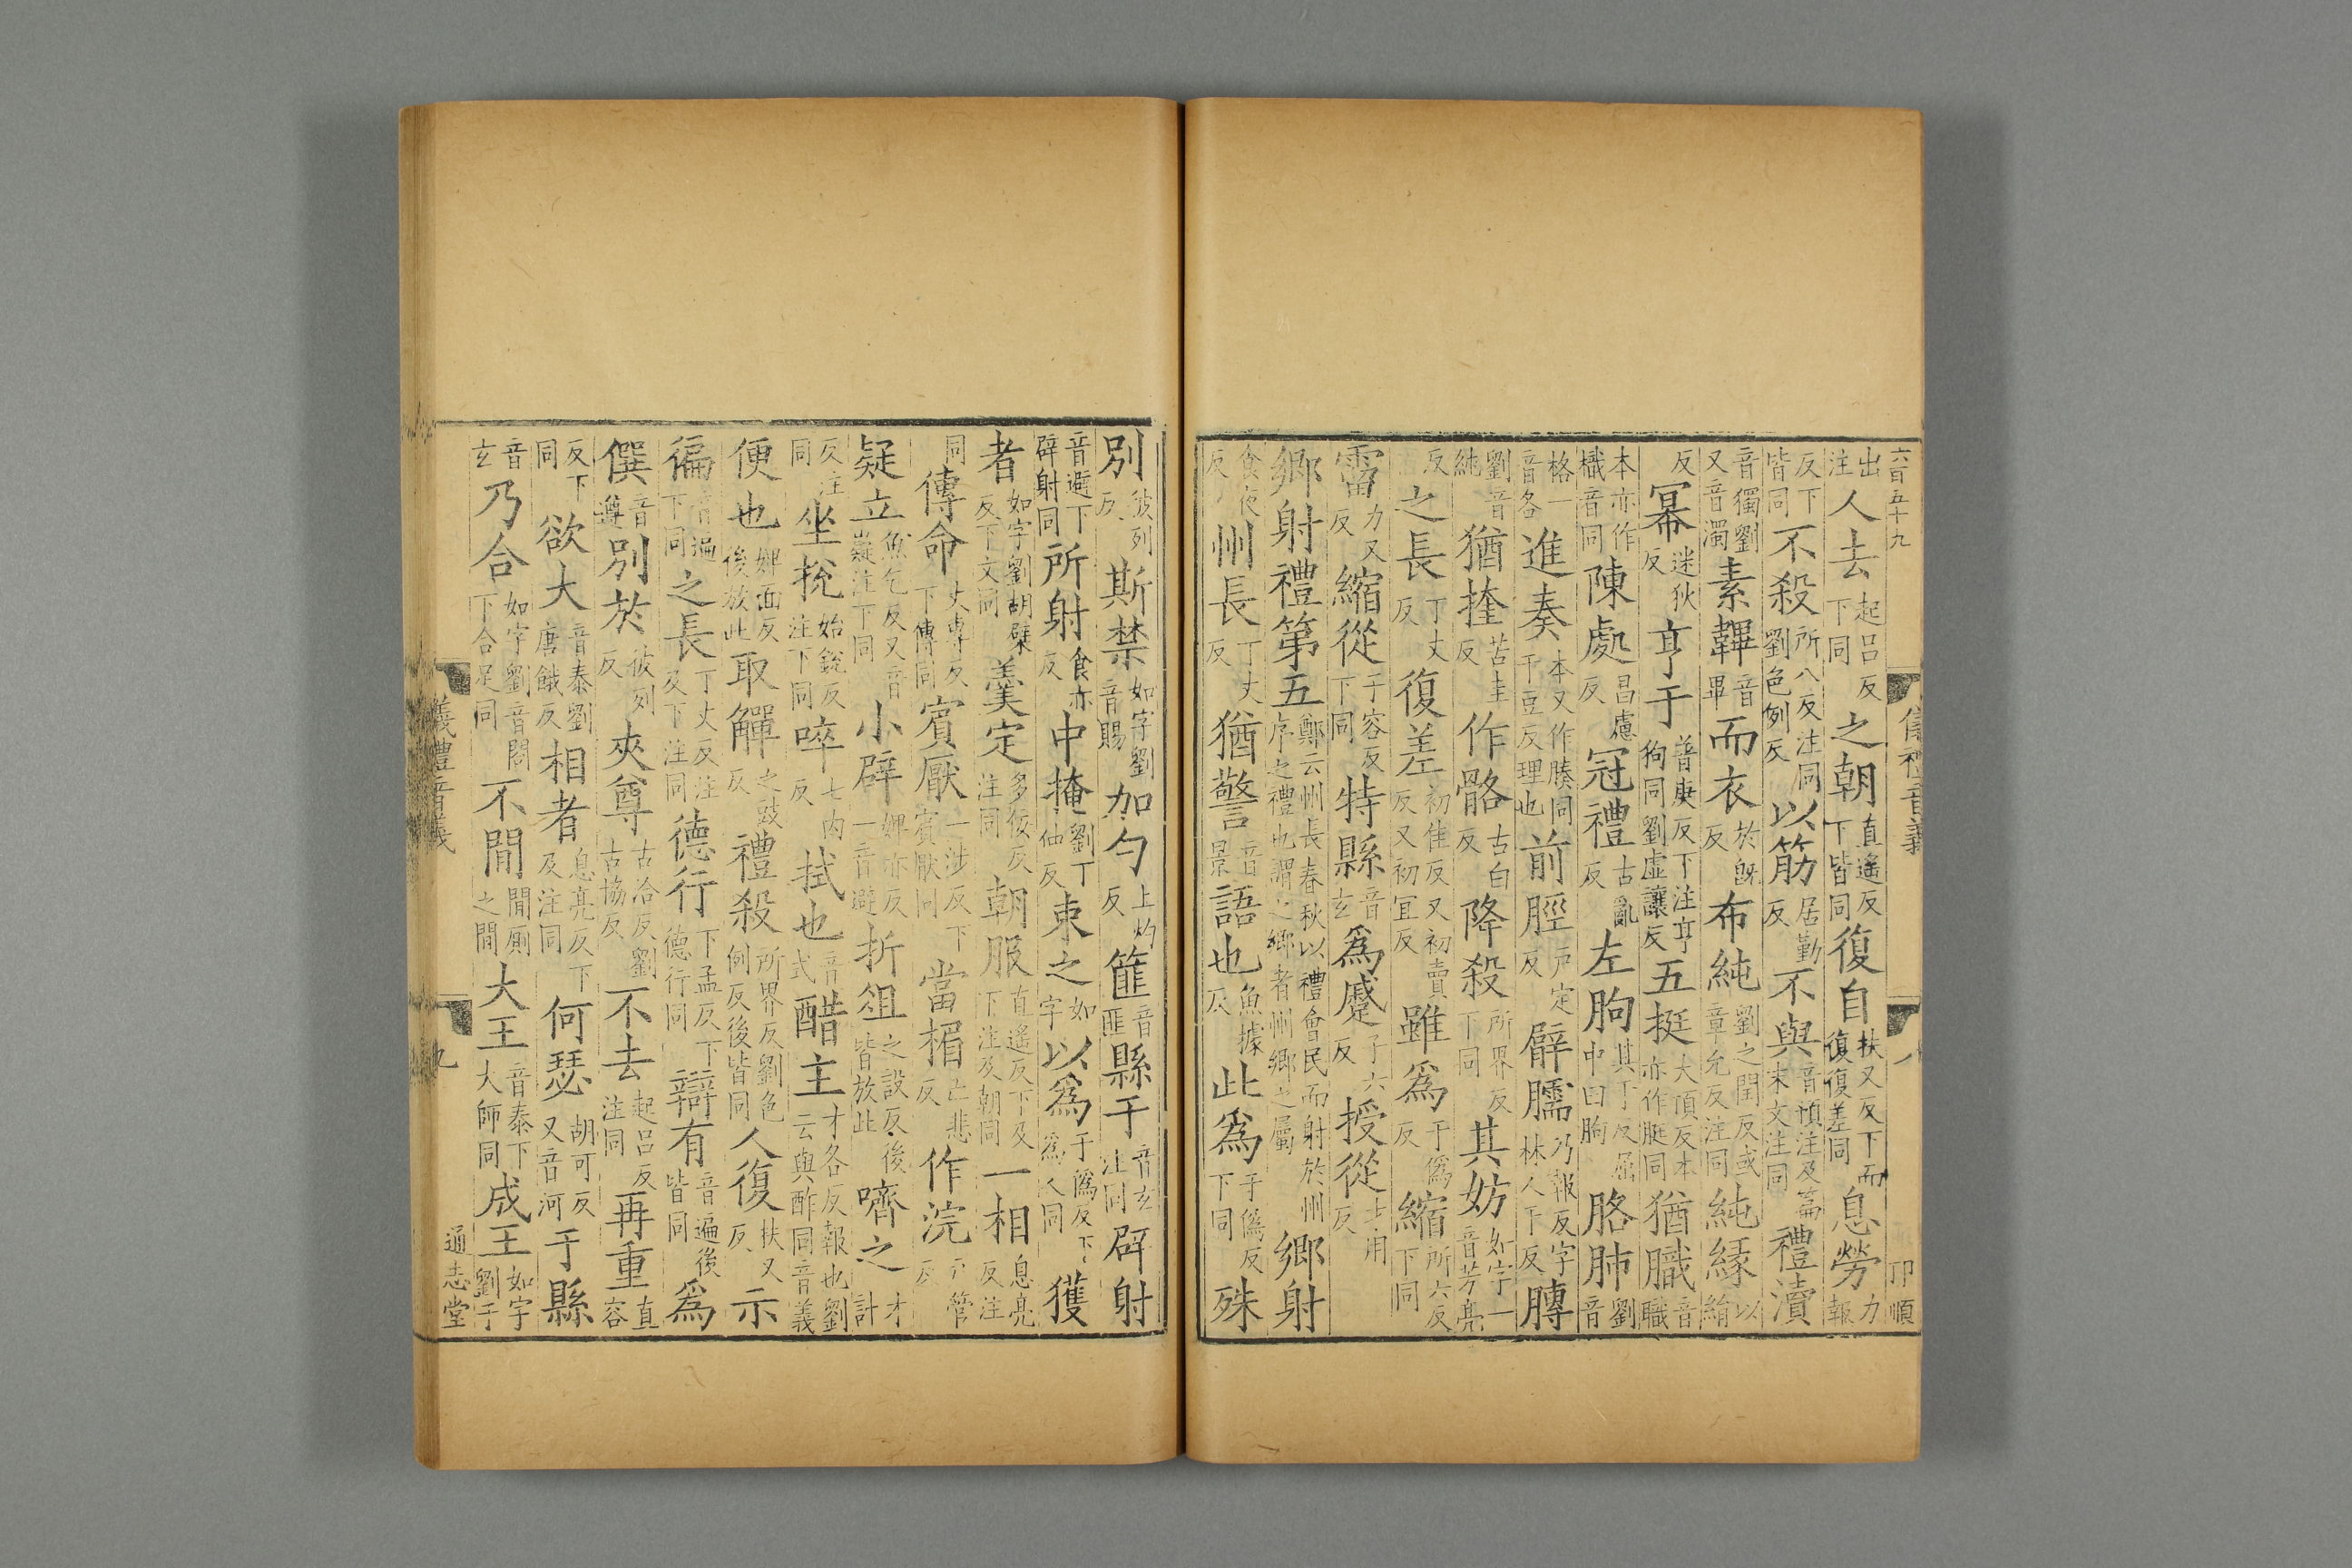 六百五十九 儀禮音義 八 卬順
出注人去起呂反下同之朝直遙反下皆同復自扶又反下而復復差同息勞力報
反下皆同不殺所八反注同劉色例反以筋居勤反不與音預注及篇末文注同禮瀆
音獨劉又音濁素韠音畢而衣於旣反布純劉之閏反或章允反注同純緣以絹
反冪迷狄反亨于普庚反下注亨狗同劉虛讓反五挺大頂反本亦作脡同猶膱音職
本亦作樴音同陳處昌慮反冠禮古亂反左朐其于反屈中曰朐胳肺劉音
格一音各進奏本又作腠同千豆反理也前脛戶定反臂臑乃報反字林人于反膊
劉音純猶㨒苦圭反作骼古白反降殺所界反下同其妨如字一音芳亮
反之長丁丈反復差初隹反又初賣反又初宜反雖爲于僞反縮所六反下同
霤力又反縮從子容反下同特縣音玄爲蹙子六反授從才用反
鄉射禮第五鄭云州長春秋以禮會民而射於州序之禮也謂之鄉者州鄉之屬鄉射
食夜反州長丁丈反猶警音景語也魚據反此爲于僞反下同殊
別彼列反斯禁如字劉音賜加勺上灼反篚音匪縣于音玄注同辟射
音避下辟射同所射食亦反中掩劉丁仲反束之如字以爲于僞反下爲人同獲
者如字劉胡檗反下文同羹定多佞反注同朝服直遙反下及下注及朝同一相息亮反注
同傳命丈專反下傳同賓厭一涉反下賓厭同當楣亡悲反作浣戶管反
疑立魚乞反又音嶷注下同小辟婢亦反一音避折俎之設反後皆放此嚌之才計
反注同坐挩始銳反注下同啐七內反拭也音式酢主才各反報也劉云與酢同音義
便也婢面反後放此取觶之豉反禮殺所界反劉色例反後皆同人復扶又反示
徧音遍下同之長丁丈反注及下注同德行下孟反下德行同辯有音遍後皆同爲
僎音遵別於彼列反夾尊古洽反劉古協反不去起呂反注同再重直容
反下同欲大音泰劉唐餓反相者息亮反下及注同何瑟胡可反又音河于縣
音玄乃合如字劉音閤下合足同不閒閒廁之閒大王音泰下大師同成王如字劉于
儀禮音義 九 通志堂